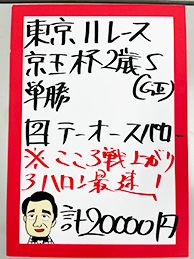 東京11レース
京王杯2歳S
(GⅡ)
単勝
図テーオースパロー
※こころ戦上がり
3ハロン最速!
計20000円